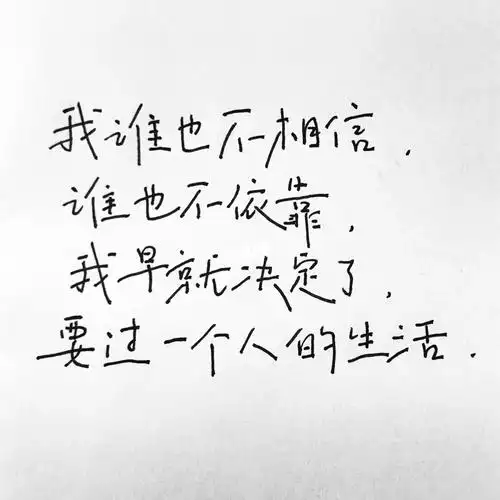 我谁也不相信.
谁也不依靠,
我早就决定了,
要过一个人的生活.